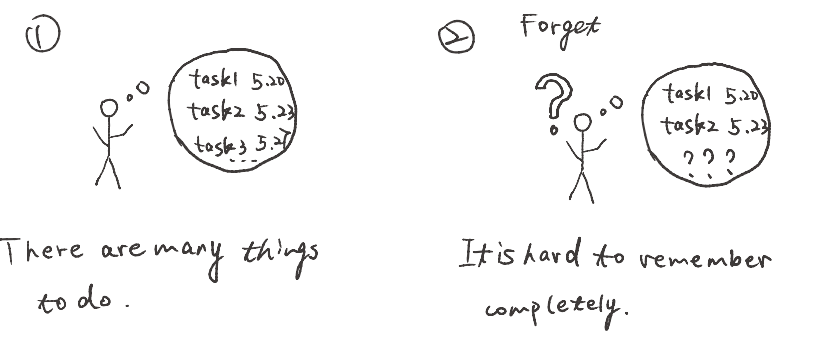 ①
task1 5.20
task2 5.23
task3 5.27
...
There are many things
to do.
②
Forget
?
task1 5.20
task2 5.23
???
It is hard to remember
completely.